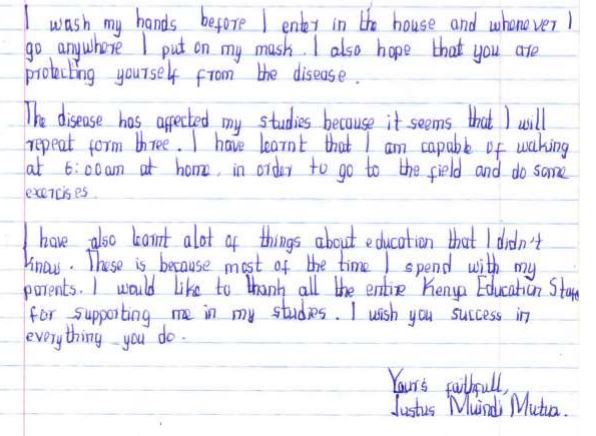 I wash my hands before I enter in the house and whenever I
go anywhere I put on my mask. I also hope that you are
protecting yourself from the disease.
The disease has affected my studies because it seems that I will
repeat form three. I have learnt that I am capable of waking
at 6:00am at home, in order to go to the field and do some
exercises.
I have also learnt alot of things about education that I didn't
know. These is because most of the time I spend with my
parents. I would like to thank all the entire Kenya Education
for supporting me in my studies. I wish you success in
everything you do.
Yours faithfull,
Justus Muindi Mutua.